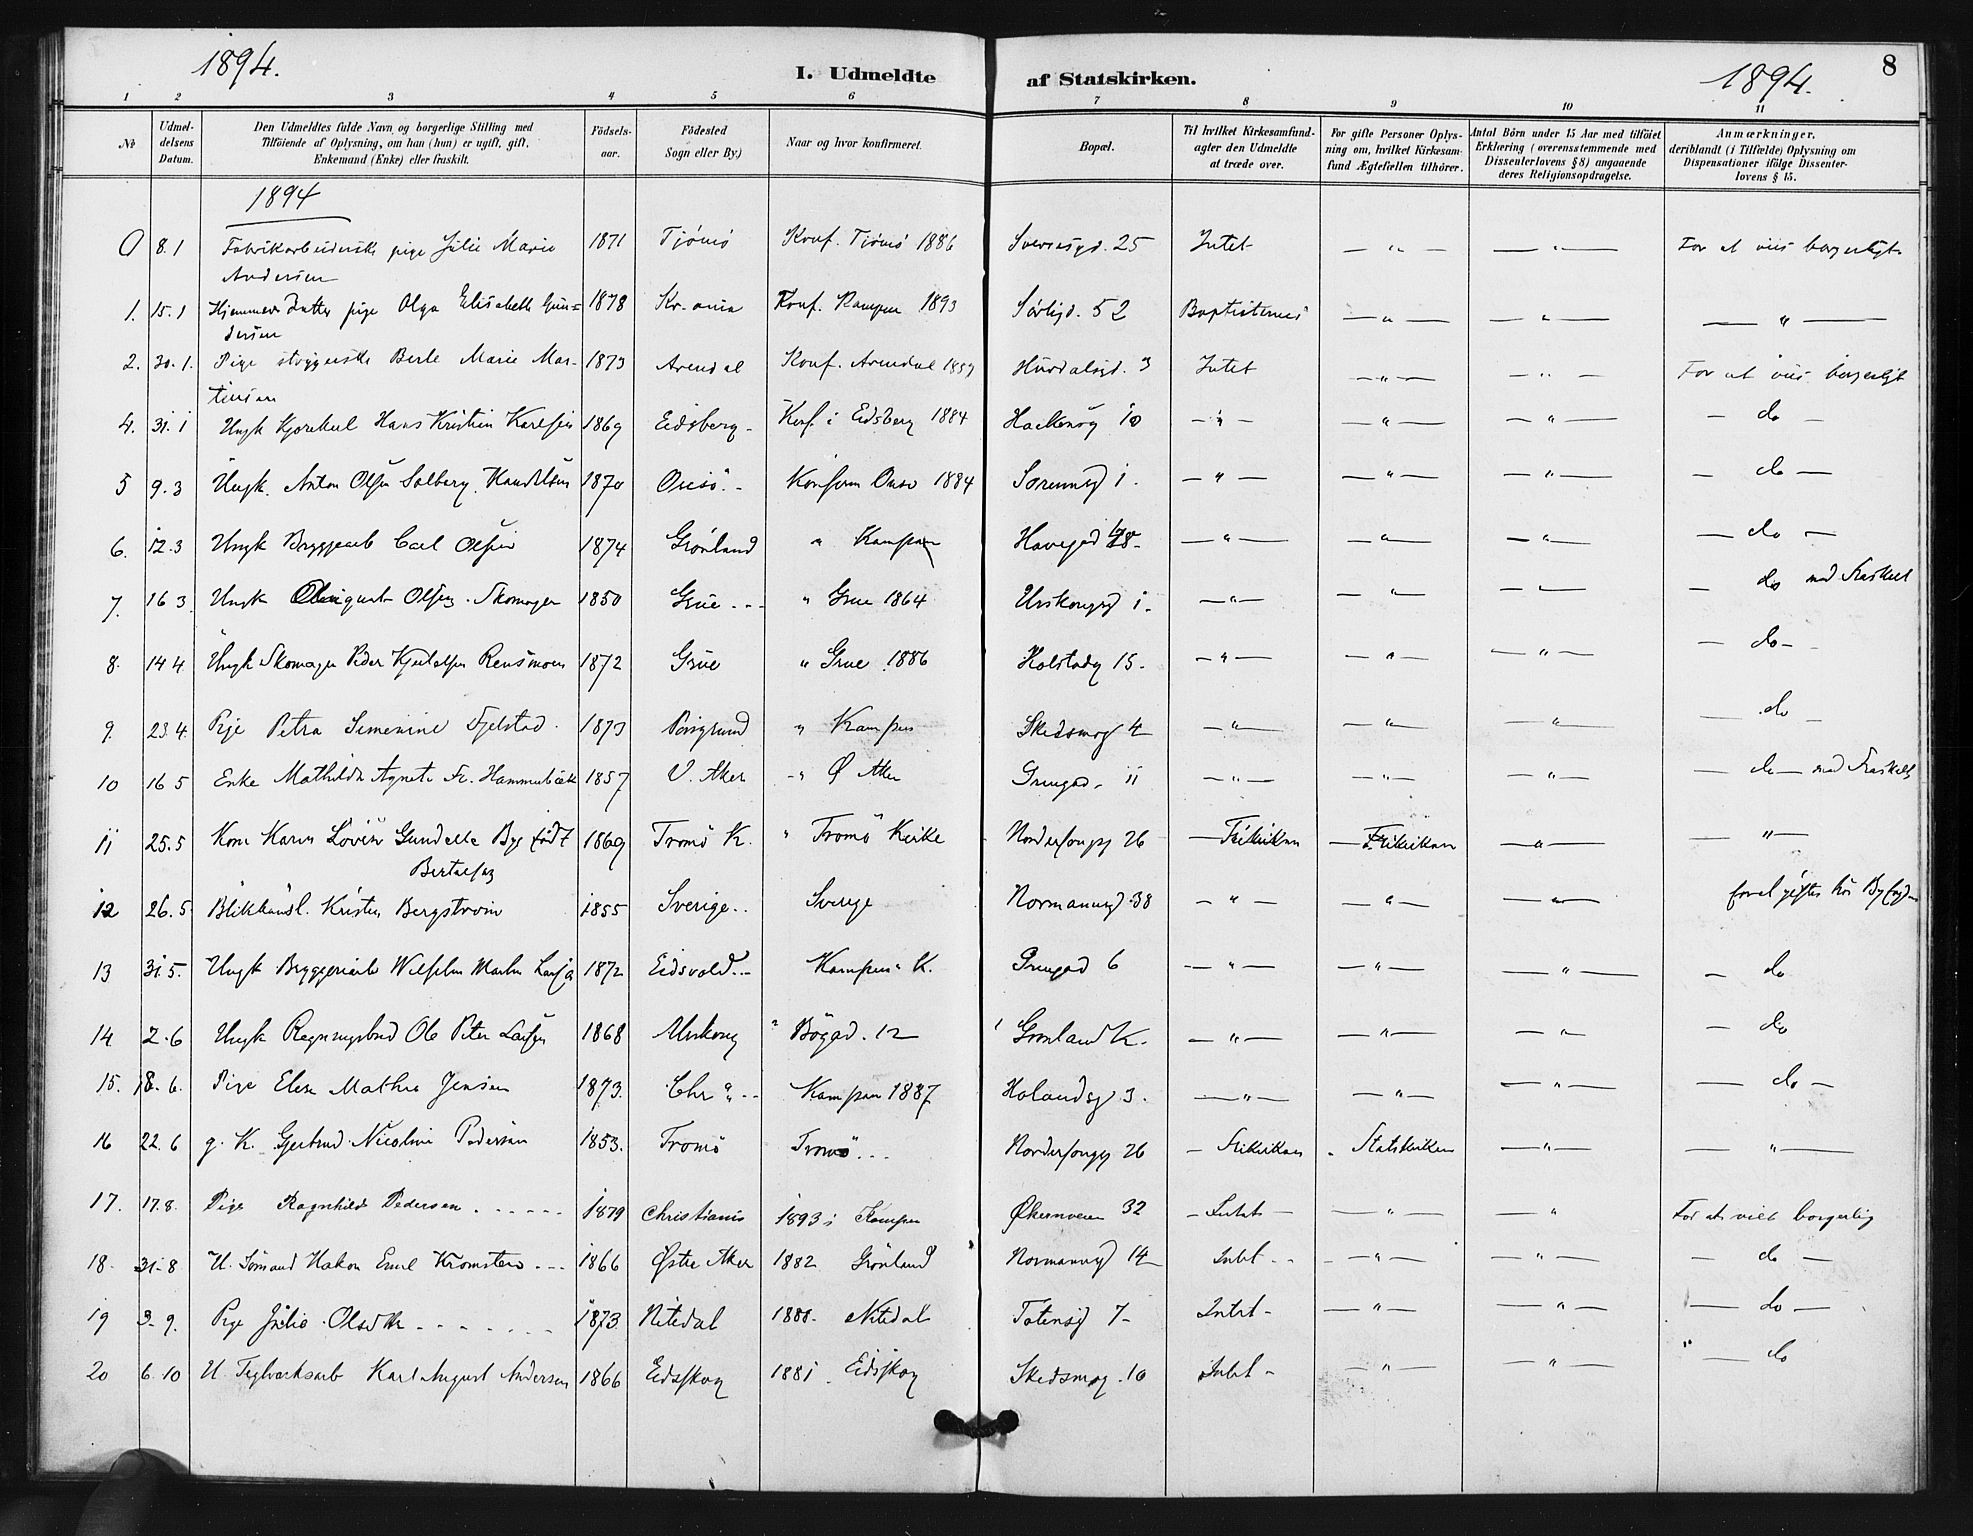 1894.
I. Udmeldte af Statskirken.
1894.
8
1 2 3 4 5 6 7 8 9 10 11
№
Udmeldelsens Datum.
Den Udmeldtes fulde Navn og borgerlige Stilling med
Tilföiende af Oplysning, om han (hun) er ugift, gift,
Enkemand (Enke) eller fraskilt.
Födselsaar.
Födested
Sogn eller By.)
Naar og hvor konfirmeret.
Bopæl.
Til hvilket Kirkesamfund
agter den Udmeldte
at træde over.
For gifte Personer Oplysning om, hvilket Kirkesamfund Ægtefællen tilhörer.
Antal Börn under 15 Aar med tilföiet
Erklæring (overensstemmende med
Dissenterlovens § 8) angaaende
deres Religionsopdragelse.
Anmærkninger,
deriblandt (i Tilfælde) Oplysning om
Dispensationer ifölge Dissenterlovens § 15.
1894
8.1 Fabrikarbeiderske pige Julie Marie 1871 Tjömö Konf. Tjömö 1886 Sverresgd. 25 Intet — " — — " — For at vies borgerligt
Andersen
1. 15.1 Hjemmev. Datter pige Olga Elisabeth Gun= 1878 Kr.ania Konf. Kampen 1893 Sörligd. 52 Baptisternes — " — — " — — " —
dersen
2. 30.1. Pige Berte Marie Mar- 1873 Arendal Konf. Arendal 1889 Hurdalsgd. 3 Intet — " — — " — For at vies borgerligt
tinsen
4. 31.1 Ungk Hans Kristian Karlsen 1869 Eidsberg - Konf. i Eidsberg 1884 10 — " — — " — — " — — do —
5 9.3 Ungk. Anton Olsen Solberg 1870 Onsö - Konform Onsö 1884 Sörenga 1. — " — — " — — " — — do —
6. 12.3 Ungk Bryggearb Carl Olsen 1874 Grönland " Kampen Havegad — " — — " — — " — — do —
7. 16 3 Ungk Olsen. Skomager 1850 Grue " Grue 1864 Urskouggd 1. — " — — " — — " — — do med Fraskilt
8. 14 4 Ungk Skomager Peder Rensmoen 1872 Grue " Grue 1886 Holstadg 15. — " — — " — — " — — do -
9. 23 4. Pige Petra Fjelstad 1873 Porsgrund " Kampen Skedsmog 4 — " — — " — — " — — do —
10 16 5 Enke Mathilde Agnete Fr. Hammerbæk 1857 V. Aker " Ø Aker Grengad. 11 — " — — " — — " — — do — med Fraskilt
11 25.5 Kone Karen Lovise Gundelle Bye født 1869 Tromö K. " Tromö Kirke 26 — Frikirken — Frikirken — " — — " —
Bertelsen
12 26.5 Blikkensl. Bergström 1855 Sverige.. Sverige Normannsgd. 38 — " — — " — — " —
13 31.5. Ungk Bryggeriarb Martin 1872 Eidsvold.. Kampens K. Grengad 6 — " — — " — — " — — do
14 2.6 Ungk Regningsbud Ole Peter Larsen 1868 Urskoug " Bögad. 12 Grönland K. — " — — " — — " — — do
15. 18.6. Pige Elise Mathea Jensen 1873. Chr a .. Kampen 1887 Holandsg 3. — " — — " — — " — — do —
16 22.6 g. K. Gjertrud Nicoline Pedersen 1853. Tromö Tromö... 26 — Frikirken Statskirken — " — — " —
17. 17.8. Pige Ragnhild Pedersen 1879 Christiania 1893 i Kampen Økernveien 32 — Intet — — " — " For at vies borgerlig
18. 31-8. U. Sömand Hakon Emil Kromsten 1866 Østre Aker 1882 Grönland Normannsgd 14 Intet — " — — " — — do —
19 3-9. Pige Julie Olsdtr 1873. Nitedal 1888 Nitedal Totensgd 7 Intet — " — — " — — do —
20 6.10 U. Teglverksarb Karl August Andersen 1866 Eidsskog 1881. Eidsskog Skedsmog. 10 Intet — " — — " — — do